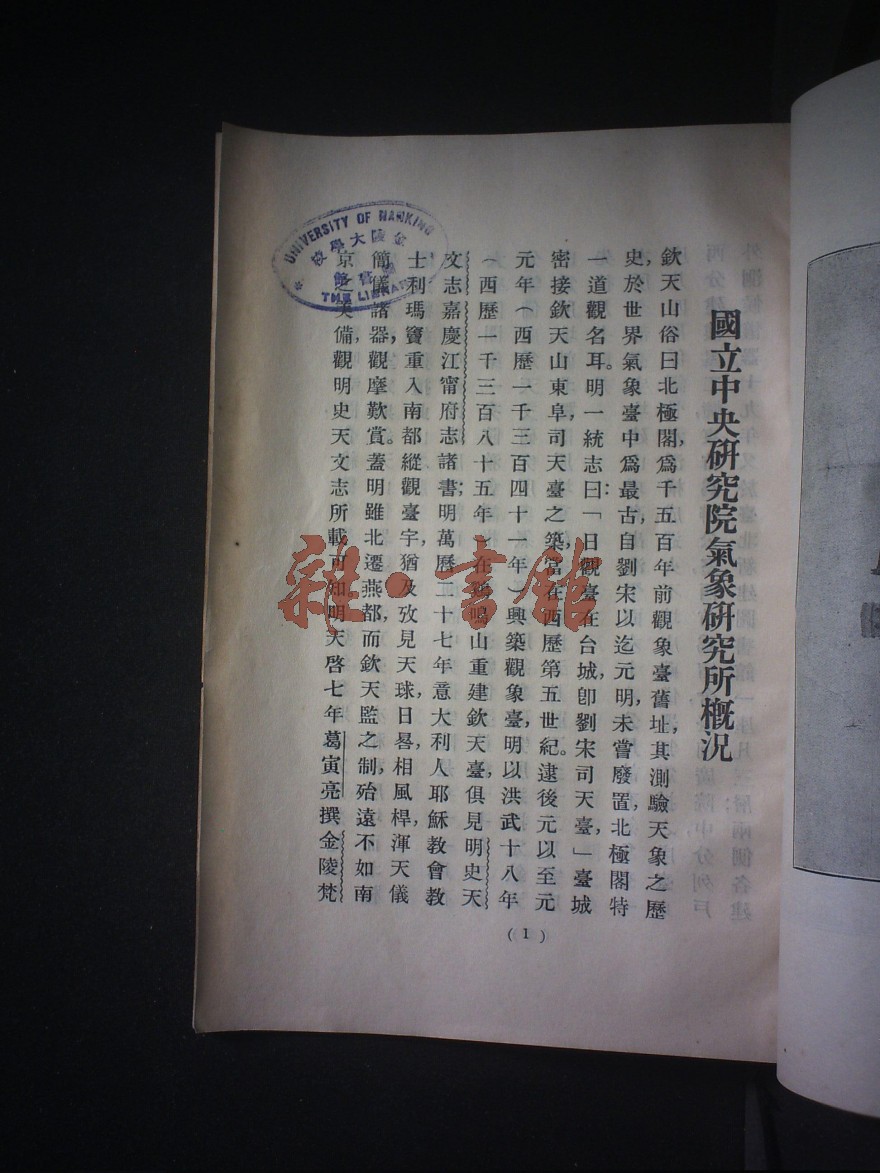 國立中央研究院氣象研究所概況
欽天山俗曰北極閣，爲千五百年前觀象臺舊址，其測驗天象之歷
史，於世界氣象臺中爲最古，自劉宋以迄元明，未嘗廢置，北極閣特
一道觀名耳。明一統志曰：「日觀臺在台城，卽劉宋司天臺，」臺城
密接欽天山東阜，司天臺之築，當在西歷第五世紀。逮後元以至元
元年（西歷一千三百四十一年）興築觀象臺，明以洪武十八年
（西歷一千三百八十五年）在鷄鳴山重建欽天臺，俱見明史天
文志嘉慶江甯府志諸書；明萬曆二十七年意大利人耶穌教會教
士利瑪竇重入南都，縱觀臺宇，猶及攷見天球，日晷，相風桿，渾天儀
簡儀諸器，觀摩歎賞。蓋明雖北遷燕都，而欽天監之制，殆遠不如南
京之美備，觀明史天文志所載可知，明天啓七年葛寅亮撰金陵梵
(1)
UNIVERSITY OF NANKING
金陵大學校
書館
THE LIBRARY
雜·書館